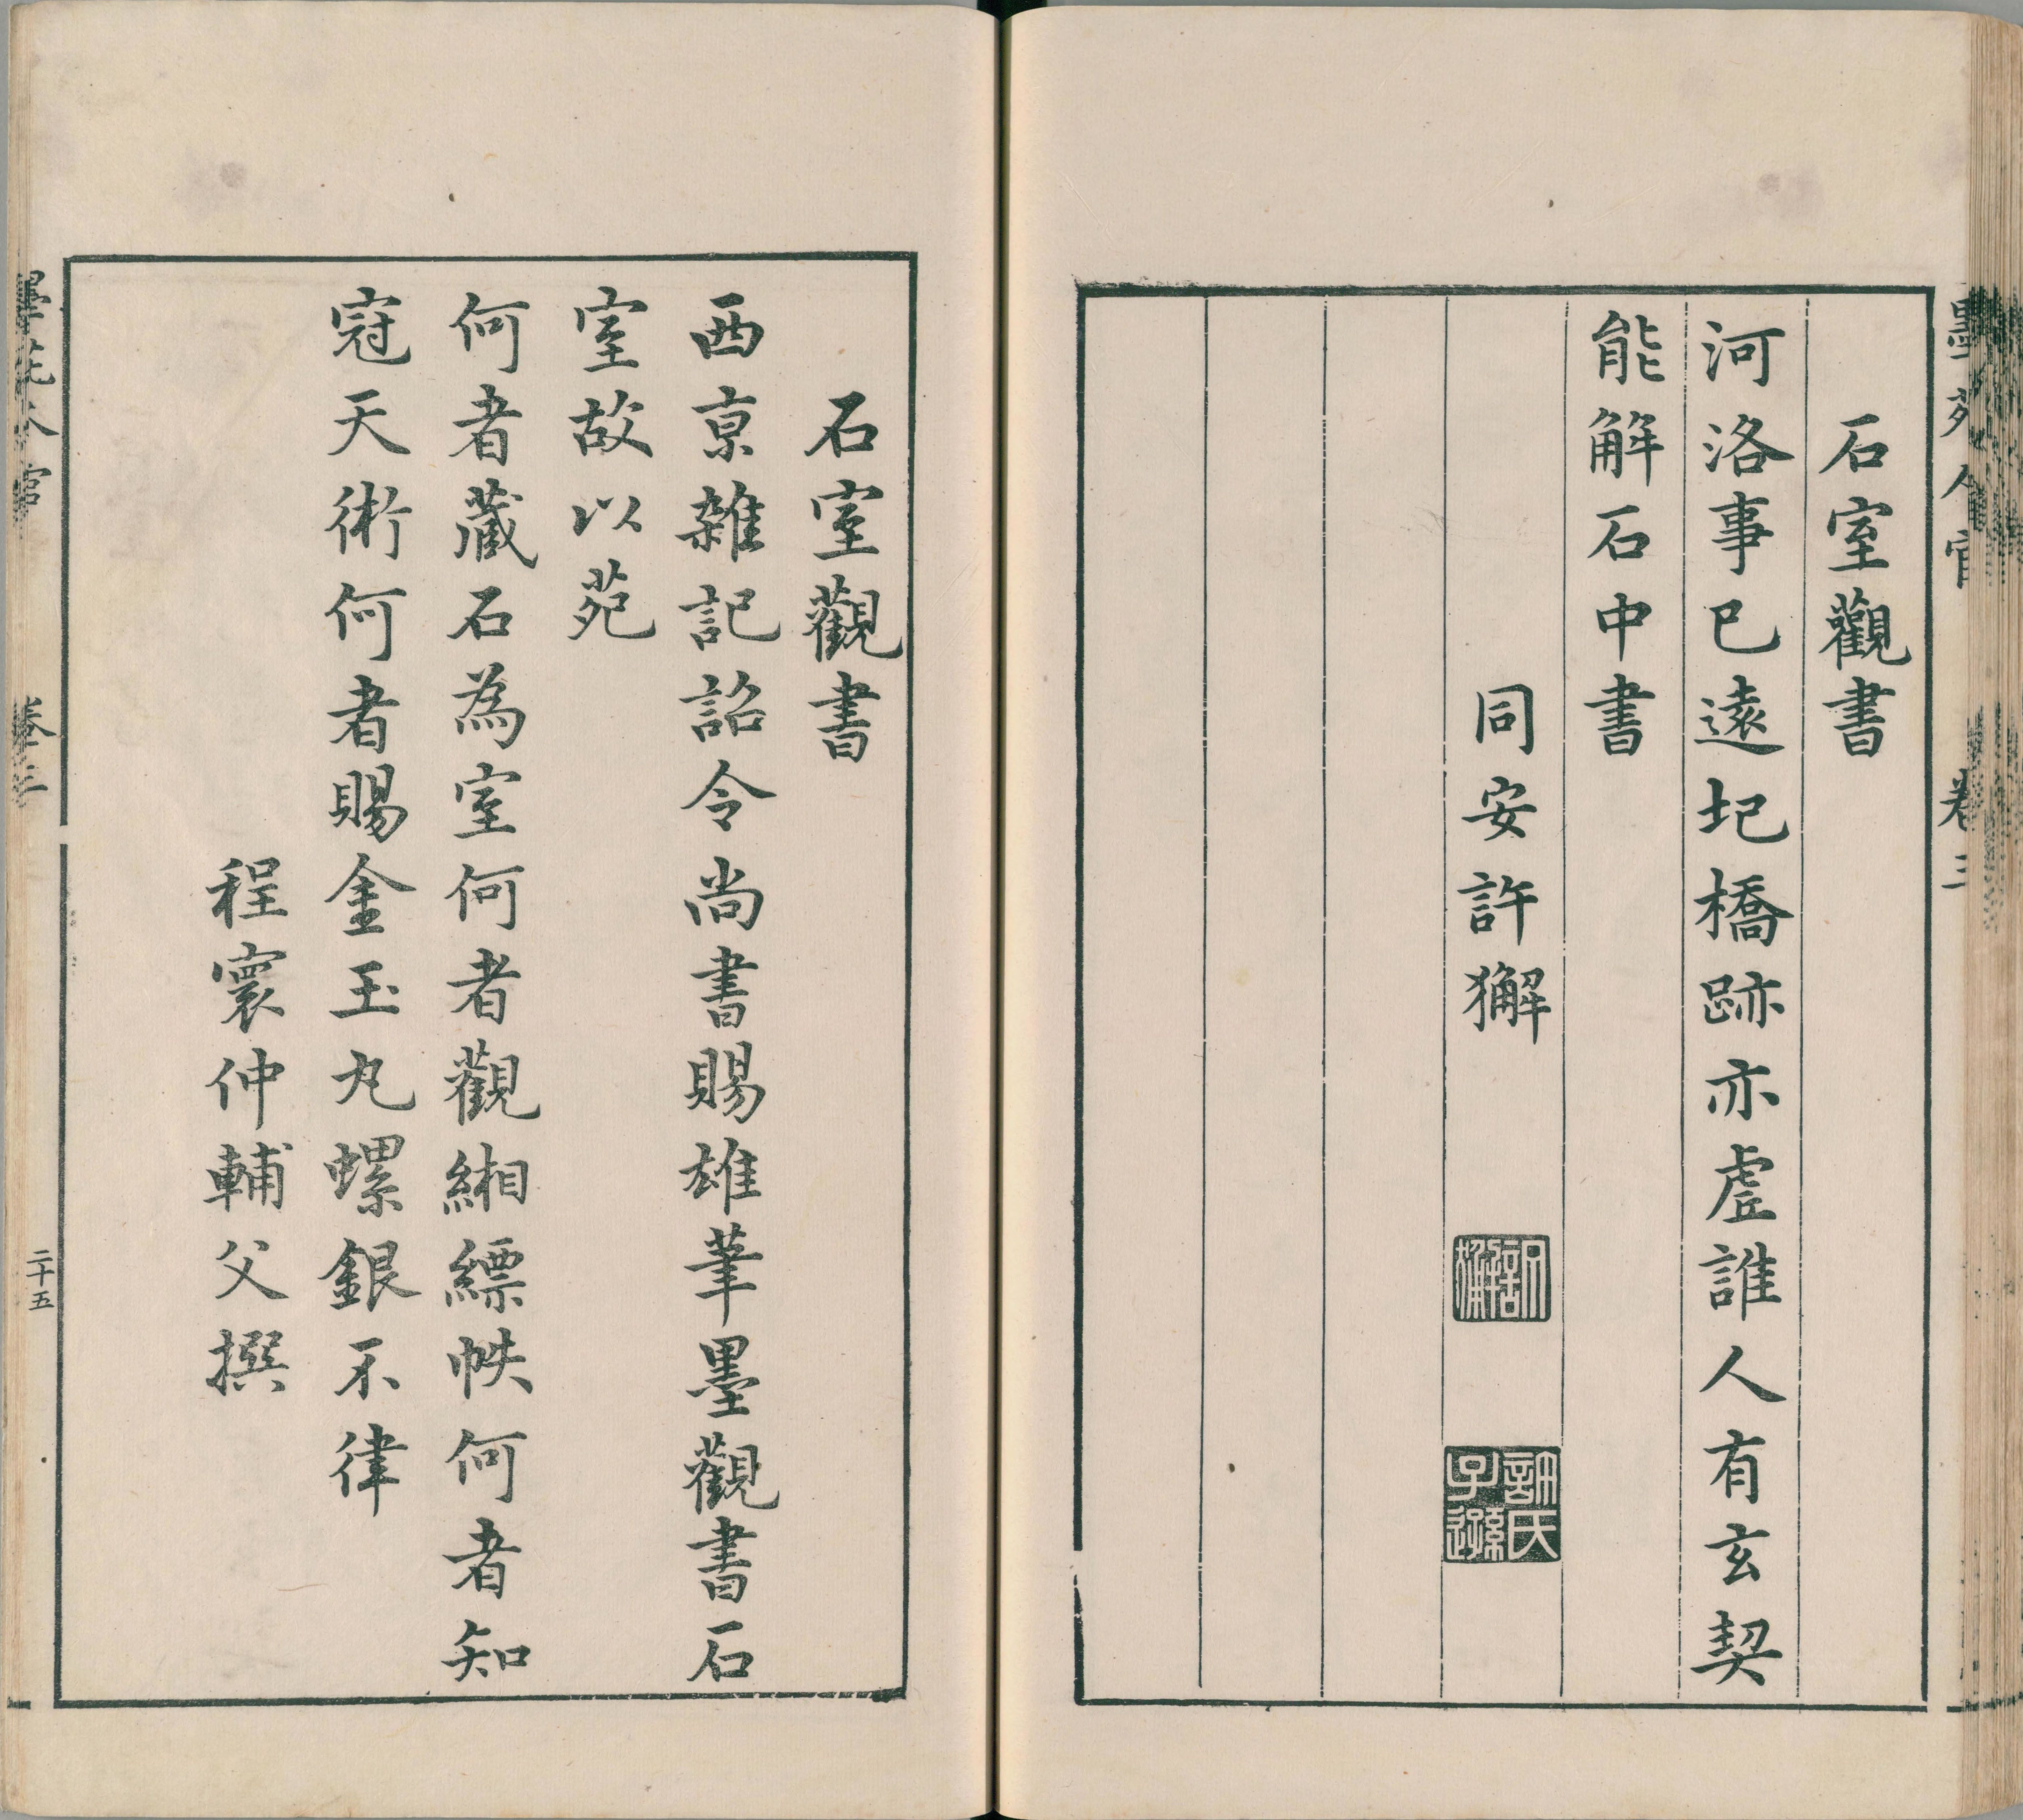 石室觀書
河洛事已遠圯橋跡亦虛誰人有玄契
能解石中書
同安許獬
許獬
許氏子遜
石室觀書
西京雜記詔令尚書賜雄筆墨觀書石
室故以苑
何者藏石為室何者觀緗縹帙何者知
冠天術何者賜金玉丸螺銀不律
程寰仲輔父撰
墨苑人官 卷三
二十五